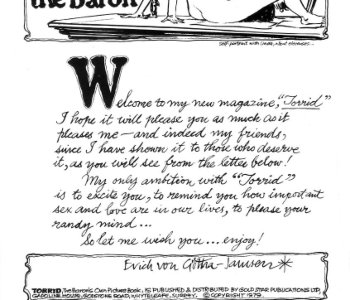 the Baron
Welcome to my new magazine, "Torrid"
I hope it will please you as much as it
pleases me — and indeed my friends,
since I have shown it to those who deserve
it, as you will see from the letter below!
My only ambition with "Torrid"
is to excite you, to remind you how important
sex and love are in our lives, to please your
randy mind...
So let me wish you... enjoy!
Erich von Götha-Jansen*
TORRID, The Baron's Own Picture Book, IS PUBLISHED & DISTRIBUTED BY GOLD STAR PUBLICATIONS LTD,
GADOLINE HOUSE, GODSTONE ROAD, WHYTELEAFE, SURREY. © COPYRIGHT 1979.